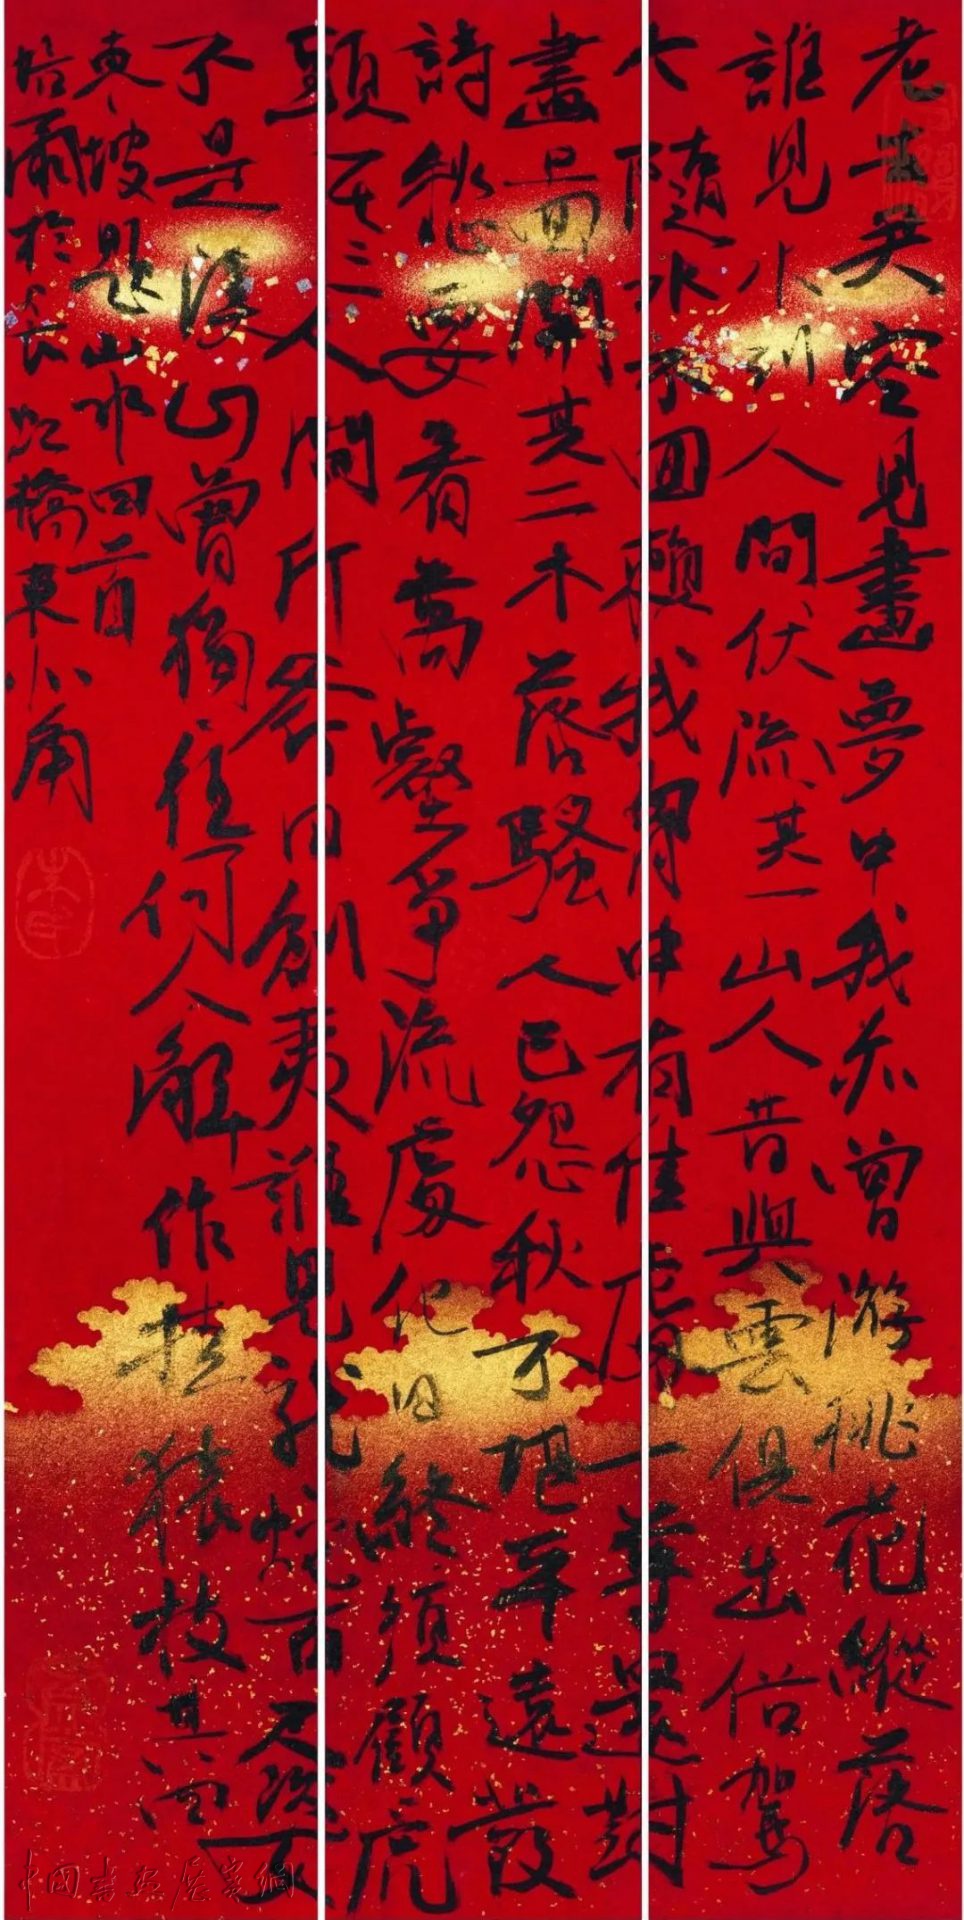 老去君空見畫夢中我亦曾游桃花縱落
誰見水到人間伏流其一山人昔與雲俱出俗駕
今隨水不回賴我胸中有佳處一尊還對
畫圖開其二木落騷人已怨秋不堪平遠發
詩愁要看萬壑爭流處他日終須顧虎
頭其三人間斤斧日創夷誰見龍蛇百尺姿
不是溪山曾獨往何人解作挂猿枝其四
東坡題山水四首
培爾於長虹橋東北角